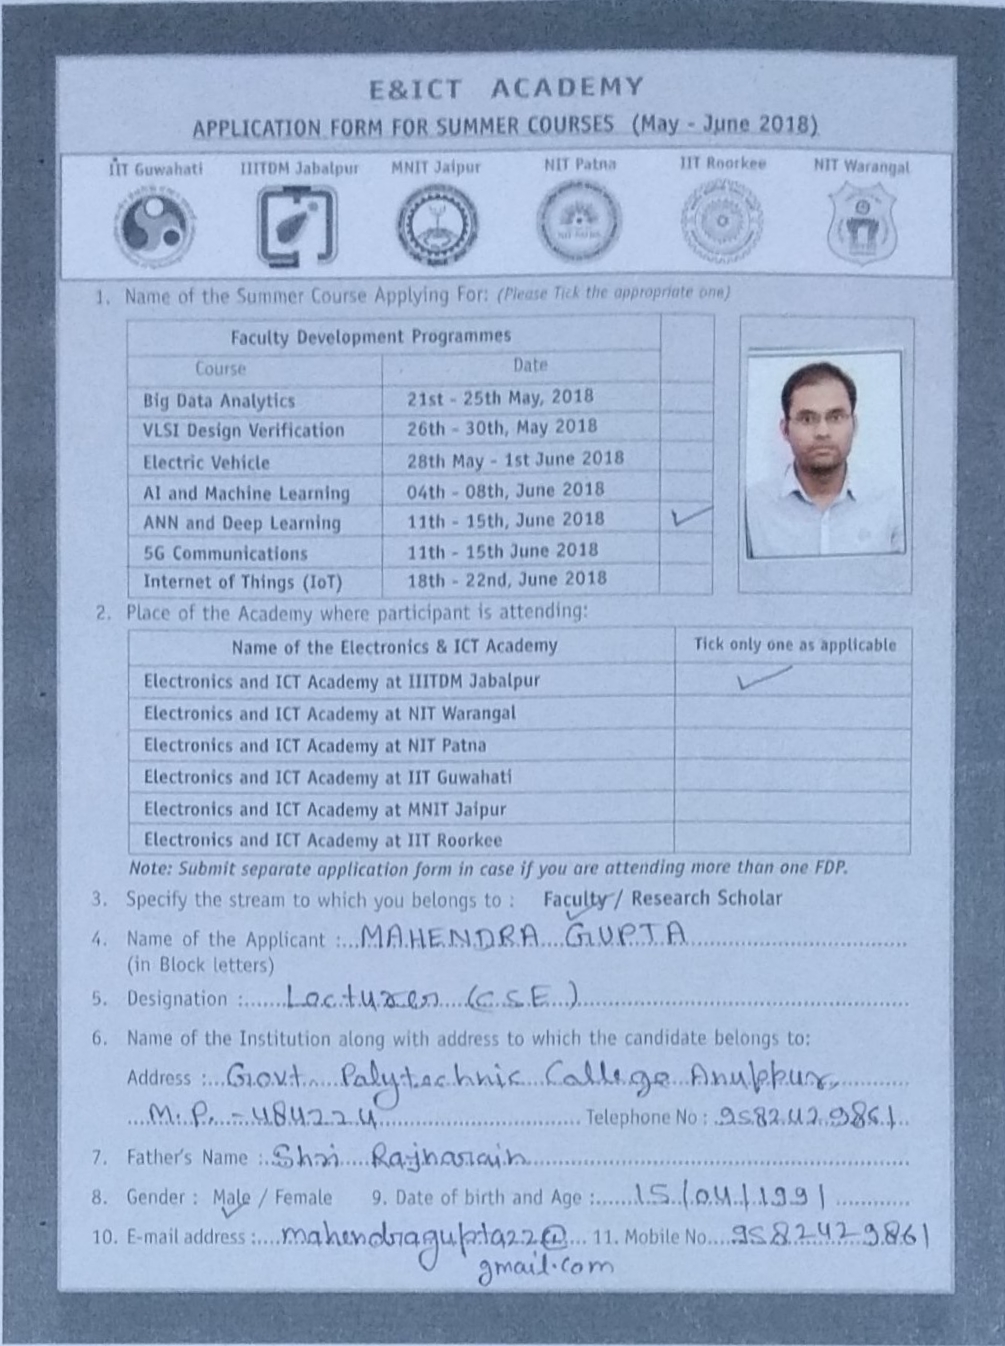 E&ICT ACADEMY
APPLICATION FORM FOR SUMMER COURSES (May - June 2018)
IIT Guwahati IIITDM Jabalpur MNIT Jaipur NIT Patna IIT Roorkee NIT Warangal
1. Name of the Summer Course Applying For: (Please Tick the appropriate one)
Faculty Development Programmes
Course Date
Big Data Analytics 21st - 25th May, 2018
VLSI Design Verification 26th - 30th, May 2018
Electric Vehicle 28th May - 1st June 2018
AI and Machine Learning 04th - 08th, June 2018
ANN and Deep Learning 11th - 15th, June 2018 ✓
5G Communications 11th - 15th June 2018
Internet of Things (IoT) 18th - 22nd, June 2018
2. Place of the Academy where participant is attending:
Name of the Electronics & ICT Academy Tick only one as applicable
Electronics and ICT Academy at IIITDM Jabalpur ✓
Electronics and ICT Academy at NIT Warangal
Electronics and ICT Academy at NIT Patna
Electronics and ICT Academy at IIT Guwahati
Electronics and ICT Academy at MNIT Jaipur
Electronics and ICT Academy at IIT Roorkee
Note: Submit separate application form in case if you are attending more than one FDP.
3. Specify the stream to which you belongs to : Faculty / Research Scholar
4. Name of the Applicant : MAHENDRA GUPTA
(in Block letters)
5. Designation : Lecturer (CSE)
6. Name of the Institution along with address to which the candidate belongs to:
Address : Govt. Polytechnic College Anuppur,
M.P. - 484224 Telephone No : 9582429861
7. Father's Name : Shri Rajnarain
8. Gender : Male / Female 9. Date of birth and Age : 15/04/1991
10. E-mail address : mahendragupta22@ 11. Mobile No. 9582429861
gmail.com